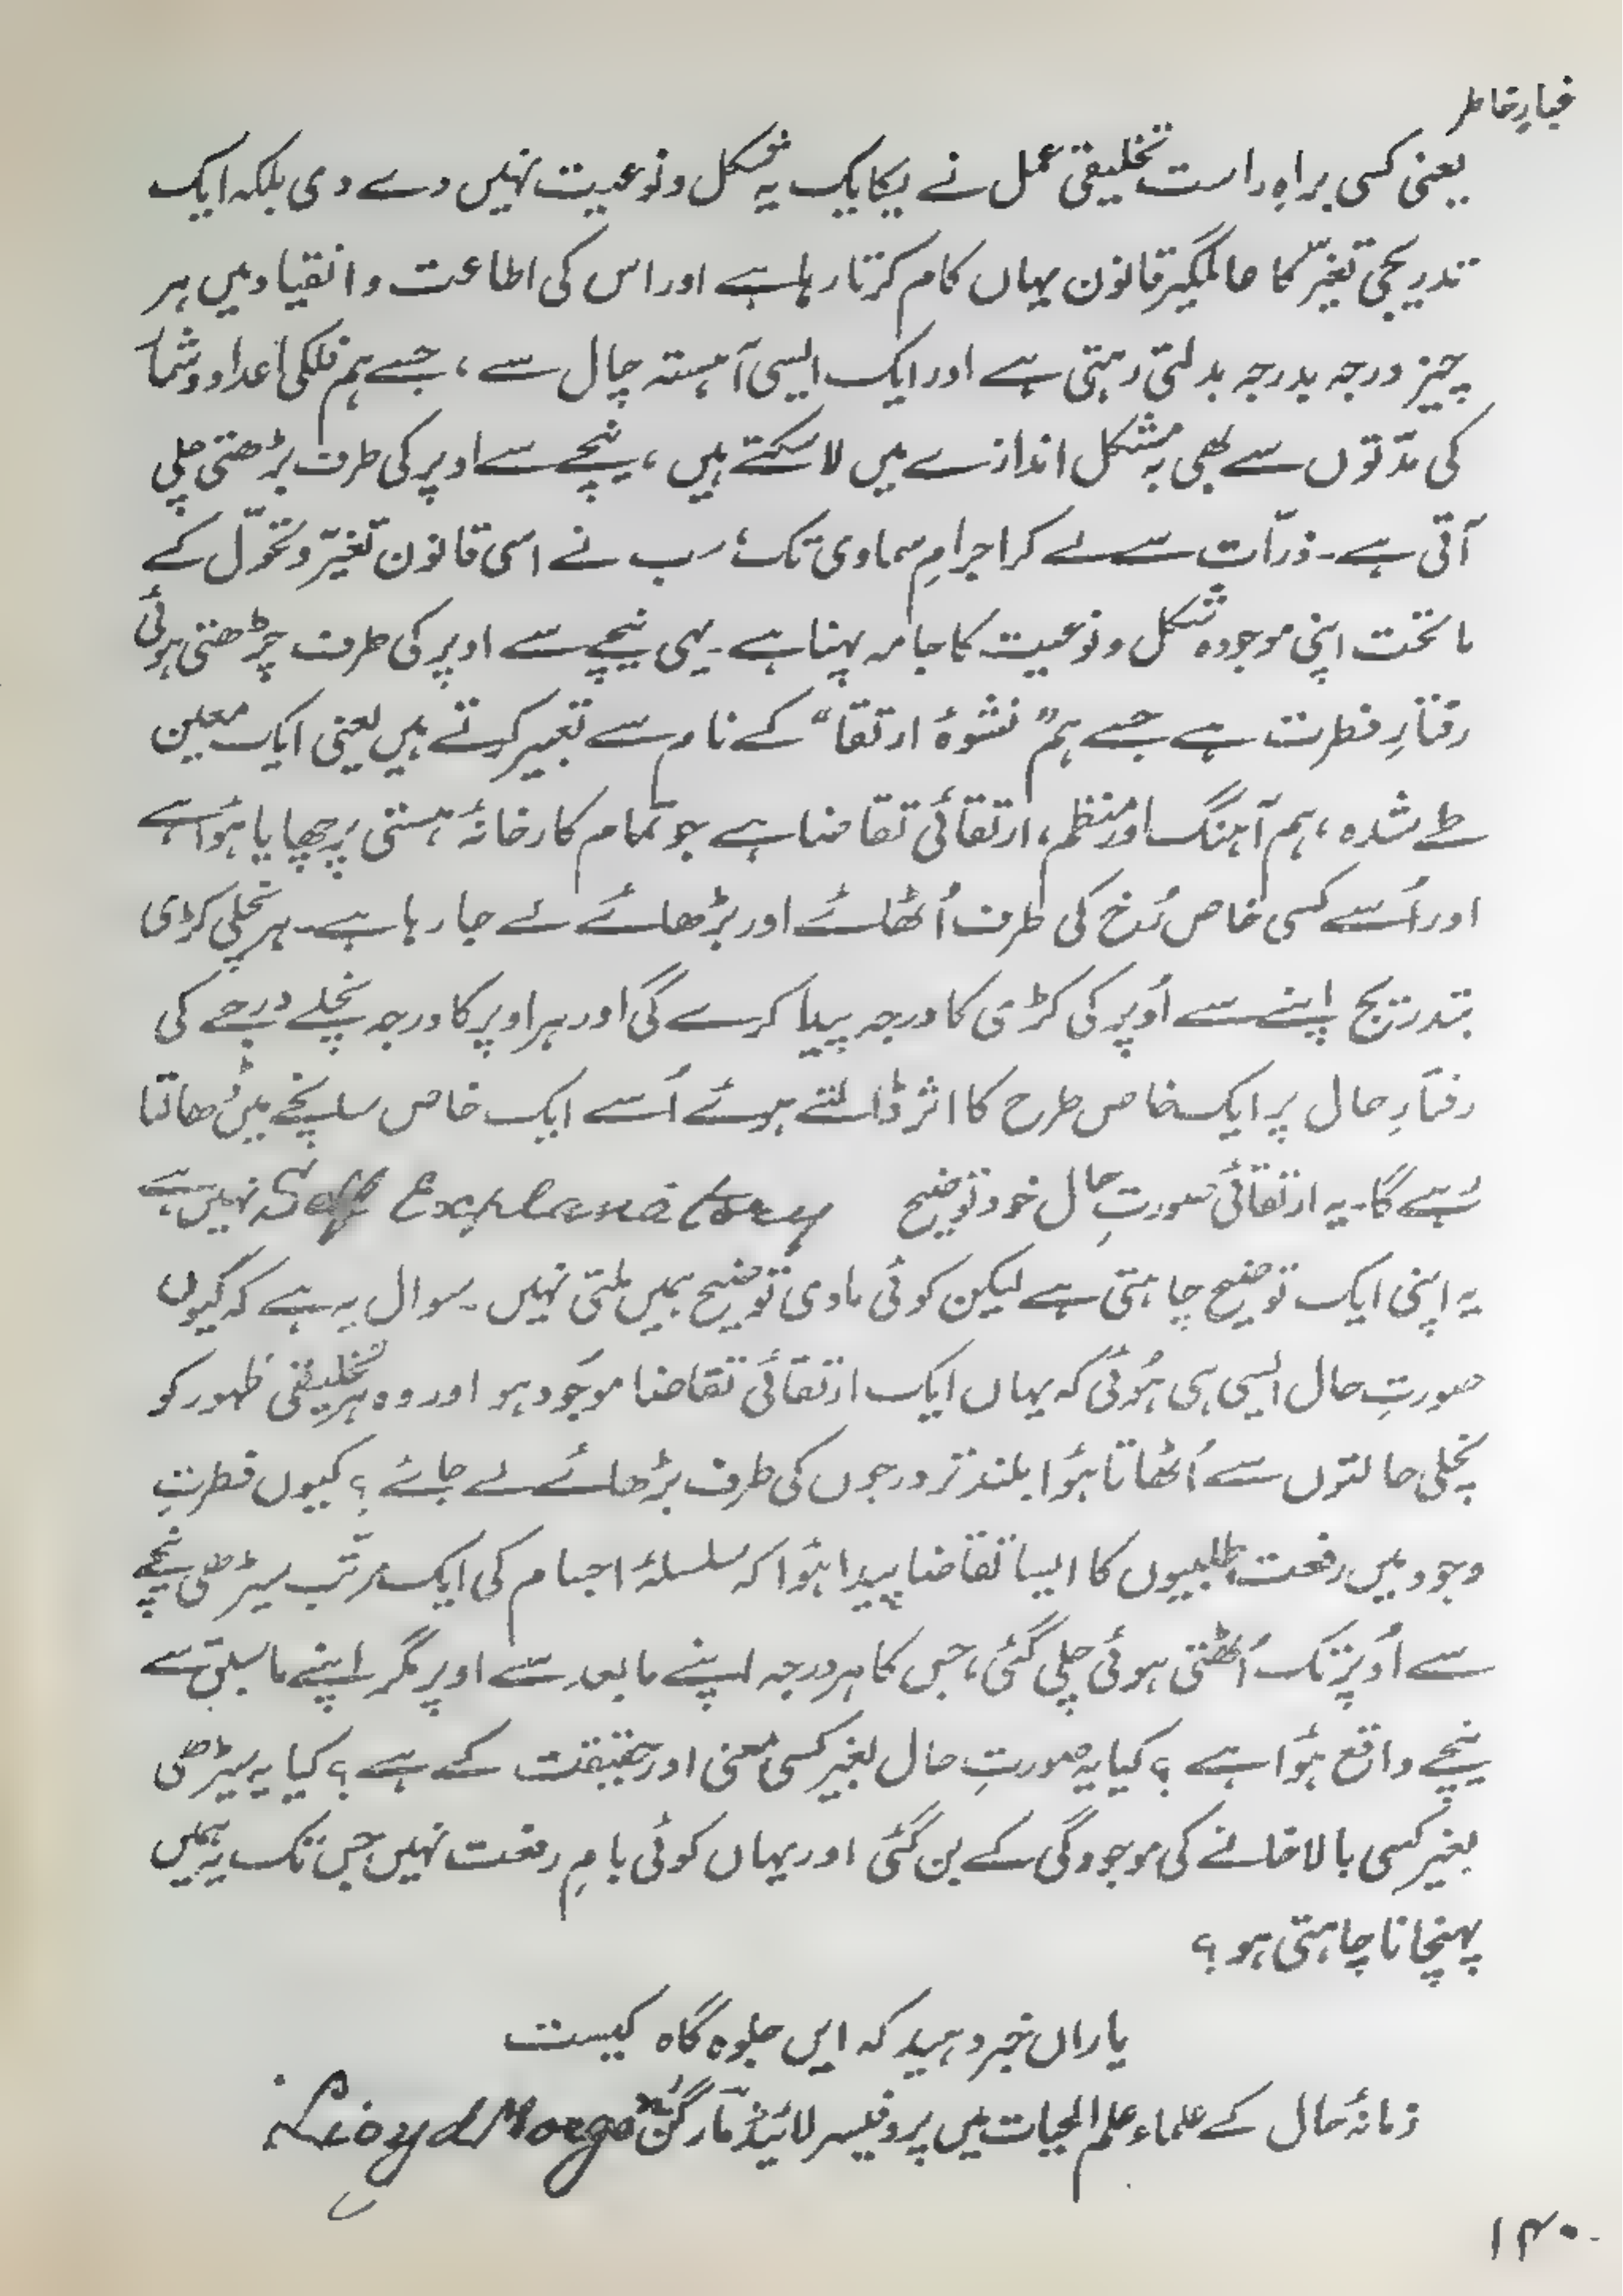 غبارِ خاطر
یعنی کسی براہِ راست تخلیقی عمل نے یکایک یہ شکل و نوعیت نہیں دے دی بلکہ ایک
تدریجی تغیّر کا عالمگیر قانون یہاں کام کرتا رہا ہے اور اس کی اطاعت و انقیاد میں ہر
چیز درجہ بدرجہ بدلتی رہتی ہے اور ایک ایسی آہستہ چال سے، جسے ہم فلکی اعداد و شمار
کی مدّتوں سے بھی بہ مشکل اندازے میں لا سکتے ہیں، نیچے سے اوپر کی طرف بڑھتی چلی
آتی ہے۔ ذرّات سے لے کر اجرامِ سماوی تک، سب نے اسی قانون تغیّر و تحوّل کے
ماتحت اپنی موجودہ شکل و نوعیت کا جامہ پہنا ہے۔ یہی نیچے سے اوپر کی طرف چڑھتی ہوئی
رفتارِ فطرت ہے جسے ہم "نشوءُ ارتقا" کے نام سے تعبیر کرتے ہیں یعنی ایک معین
طے شدہ، ہم آہنگ اور منظم، ارتقائی تقاضا ہے جو تمام کارخانۂ ہستی پر چھایا ہوا ہے
اور اُسے کسی خاص رُخ کی طرف اُٹھائے اور بڑھائے لے جا رہا ہے۔ ہر نچلی کڑی
بتدریج اپنے سے اُوپر کی کڑی کا درجہ پیدا کرے گی اور ہر اوپر کا درجہ نچلے درجے کی
رفتارِ حال پر ایک خاص طرح کا اثر ڈالتے ہوئے اُسے ایک خاص سانچے میں ڈھالتا
رہے گا۔ یہ ارتقائی صورتِ حال خود توضیح Self Explanatory نہیں ہے
یہ اپنی ایک توضیح چاہتی ہے لیکن کوئی مادی توضیح ہمیں ملتی نہیں۔ سوال یہ ہے کہ کیوں
صورتِ حال ایسی ہی ہُوئی کہ یہاں ایک ارتقائی تقاضا موجود ہو اور وہ ہر تخلیقی ظہور کو
نچلی حالتوں سے اُٹھاتا ہُوا بلند تر درجوں کی طرف بڑھائے لے جائے؟ کیوں فطرتِ
وجود میں رفعت طلبیوں کا ایسا تقاضا پیدا ہُوا کہ سلسلۂ اجسام کی ایک مرتّب سیڑھی نیچے
سے اُوپر تک اُٹھتی ہوئی چلی گئی، جس کا ہر درجہ اپنے مابعد سے اوپر مگر اپنے ماسبق سے
نیچے واقع ہُوا ہے؟ کیا یہ صورتِ حال بغیر کسی معنی اور حقیقت کے ہے؟ کیا یہ سیڑھی
بغیر کسی بالاخانے کی موجودگی کے بن گئی اور یہاں کوئی بامِ رفعت نہیں جس تک یہ ہمیں
پہنچانا چاہتی ہو؟
یاراں خبر دہید کہ ایں جلوہ گاہ کیست
زمانۂ حال کے علماءِ علم الحیات میں پروفیسر لائیڈ مارگن Lioyd Morgan
۱۴۰